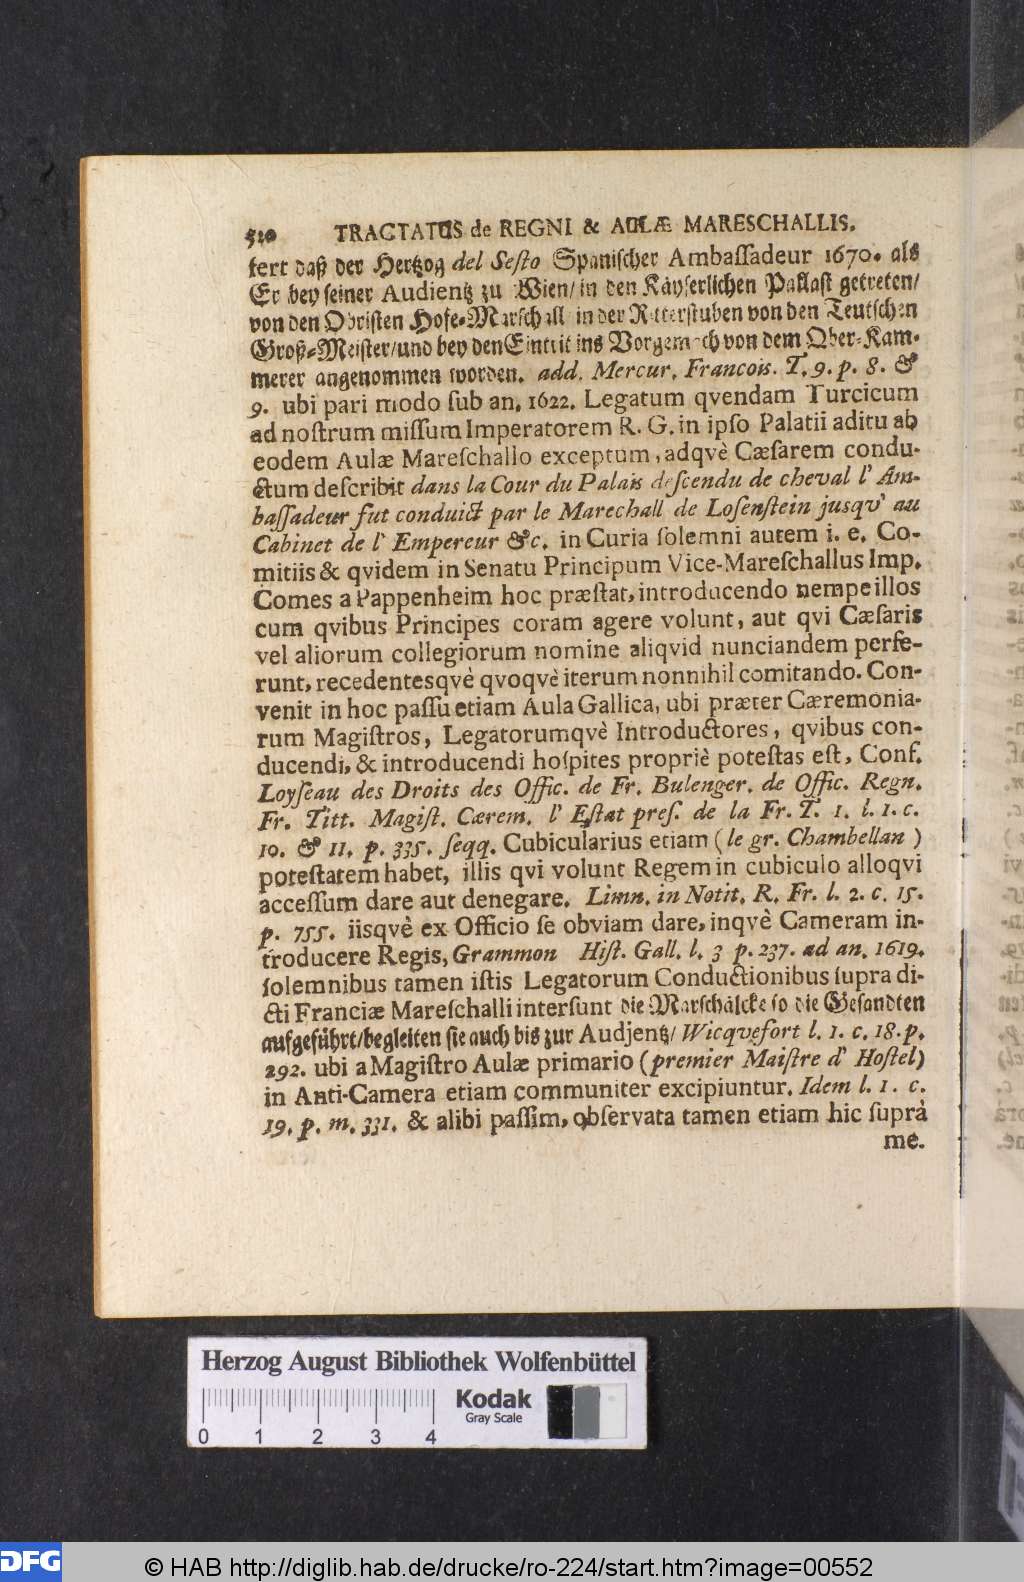 510 TRACTATUS de REGNI & AULÆ MARESCHALLIS.
fert daß der Hertzog del Seſto Spaniſcher Ambaſſadeur 1670. als
Er bey ſeiner Audientz zu Wien/in den Kåyſerlichen Pallaſt getreten/
von den Obriſten Hofe-Marſchall in der Ritterſtuben von den Teutſchen
Groß-Meiſter/und bey den Eintrit ins Vorgemach von dem Ober-Kam-
merer angenommen worden. add. Mercur. Francois. T. 9. p. 8. &
9. ubi pari modo ſub an. 1622. Legatum qvendam Turcicum
ad noſtrum miſſum Imperatorem R. G. in ipſo Palatii aditu ab
eodem Aulæ Mareſchallo exceptum, adqvè Cæſarem condu-
ctum deſcribit dans la Cour du Palais deſcendu de cheval l' Am-
baſſadeur fut conduict par le Marechall de Loſenſtein jusqv' au
Cabinet de l' Empereur &c. in Curia ſolemni autem i. e. Co-
mitiis & qvidem in Senatu Principum Vice-Mareſchallus Imp.
Comes a Pappenheim hoc præſtat, introducendo nempe illos
cum qvibus Principes coram agere volunt, aut qvi Cæſaris
vel aliorum collegiorum nomine aliqvid nunciandem perfe-
runt, recedentesqvè qvoqvè iterum nonnihil comitando. Con-
venit in hoc paſſu etiam Aula Gallica, ubi præter Cæremonia-
rum Magiſtros, Legatorumqvè Introductores, qvibus con-
ducendi, & introducendi hoſpites propriè poteſtas eſt, Conf.
Loyſeau des Droits des Offic. de Fr. Bulenger. de Offic. Regn.
Fr. Titt. Magiſt. Cærem. l' Eſtat preſ. de la Fr. T. 1. l. 1. c.
10. & 11. p. 335. ſeqq. Cubicularius etiam (le gr. Chambellan)
poteſtatem habet, illis qvi volunt Regem in cubiculo alloqvi
acceſſum dare aut denegare. Limn. in Notit. R. Fr. l. 2. c. 15.
p. 755. iisqvè ex Officio ſe obviam dare, inqvè Cameram in-
troducere Regis, Grammon Hiſt. Gall. l. 3 p. 237. ad an. 1619.
ſolemnibus tamen iſtis Legatorum Conductionibus ſupra di-
cti Franciæ Mareſchalli interſunt die Marſchålcke ſo die Geſandten
aufgeführt/begleiten ſie auch bis zur Audjentz/ Wicqvefort l. 1. c. 18. p.
292. ubi a Magiſtro Aulæ primario (premier Maiſtre d' Hoſtel)
in Anti-Camera etiam communiter excipiuntur. Idem l. 1. c.
19. p. m. 331. & alibi paſſim, obſervata tamen etiam hic ſuprà
me.
Herzog August Bibliothek Wolfenbüttel
Kodak
Gray Scale
0 1 2 3 4
DFG © HAB http://diglib.hab.de/drucke/ro-224/start.htm?image=00552